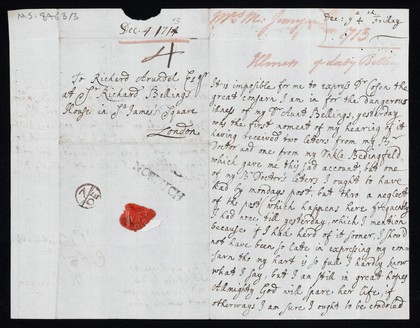 MS. 8463/3
Dec. 4 1713
4
To Richard Arundel Esqr
at Sr Richard Bellings
House in St James's Square
London
NORWICH
7
DE
Mrs M. Jerny
Dec: 4th Friday
1713
Illness of Lady Belling
It is imposible for me to express Dr Cosen the
great consarn I am in for the dangerous
illness of my Dr Aunt Bellings, yesterday
was the first moment of my hearing of it
having received two letters from my Br
Doctor and one from my Unkle Bedingfeld
which gave me this sad account, but one
of my Br Doctor's leters I ought to have
had by mondays post, but thro a neglect
of the post which happens here frequently
I had none till yesterday, which I mention
because if I had herd of it sooner, I should
not have been so late in expressing my con
sarn tho my hart is so full I hardly know
what I say, but I am still in great hopes
Almighty God will spare her life, if
otherways I am sure I ought to be condoled